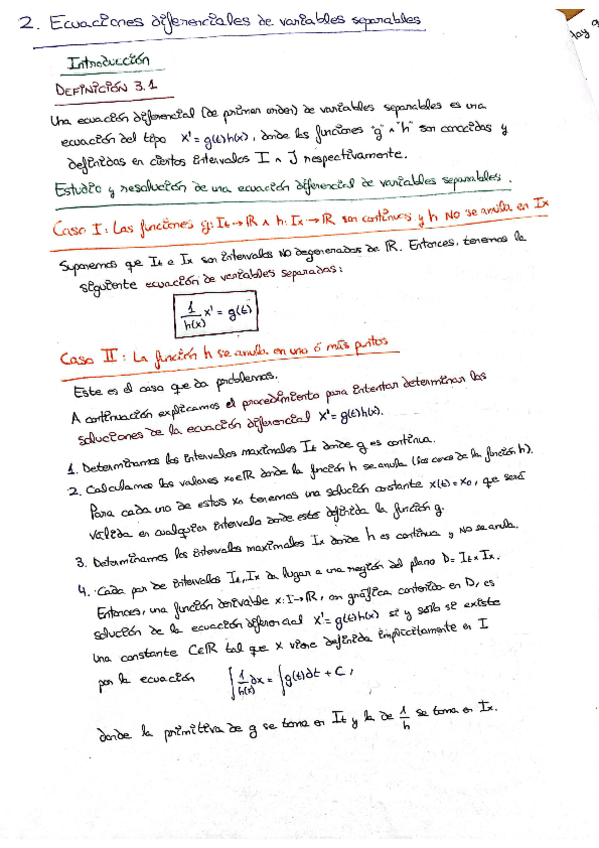 2. Ecuaciones diferenciales de variables separables
hay
Introducción
DEFINICIÓN 3.1
Una ecuación diferencial (de primer orden) de variables separables es una
ecuación del tipo x' = g(t)h(x), donde las funciones "g" ∧ "h" son conocidas y
definidas en ciertos intervalos I ∧ J respectivamente.
Estudio y resolución de una ecuación diferencial de variables separables.
Caso I: Las funciones g: It→ℝ ∧ h: Ix→ℝ son continuas y h NO se anula en Ix
Suponemos que It e Ix son intervalos NO degenerados de ℝ. Entonces, tenemos la
siguiente ecuación de variables separadas:
1/h(x) x' = g(t)
Caso II: La función h se anula en uno ó más puntos
Este es el caso que da problemas.
A continuación explicamos el procedimiento para intentar determinar las
soluciones de la ecuación diferencial x' = g(t)h(x).
1. Determinamos los intervalos maximales It donde g es continua.
2. Calculamos los valores x₀∈ℝ donde la función h se anula (los ceros de la función h).
Para cada uno de estos x₀ tenemos una solución constante x(t) = x₀, que será
válida en cualquier intervalo donde esté definida la función g.
3. Determinamos los intervalos maximales Ix donde h es continua y NO se anula.
4. Cada par de intervalos It, Ix da lugar a una región del plano D = It x Ix.
Entonces, una función derivable x: I→ℝ, con gráfica contenida en D, es
solución de la ecuación diferencial x' = g(t)h(x) si y sólo si existe
una constante C∈ℝ tal que x viene definida implícitamente en I
por la ecuación ∫ 1/h(x) dx = ∫ g(t)dt + C,
donde la primitiva de g se toma en It y la de 1/h se toma en Ix.